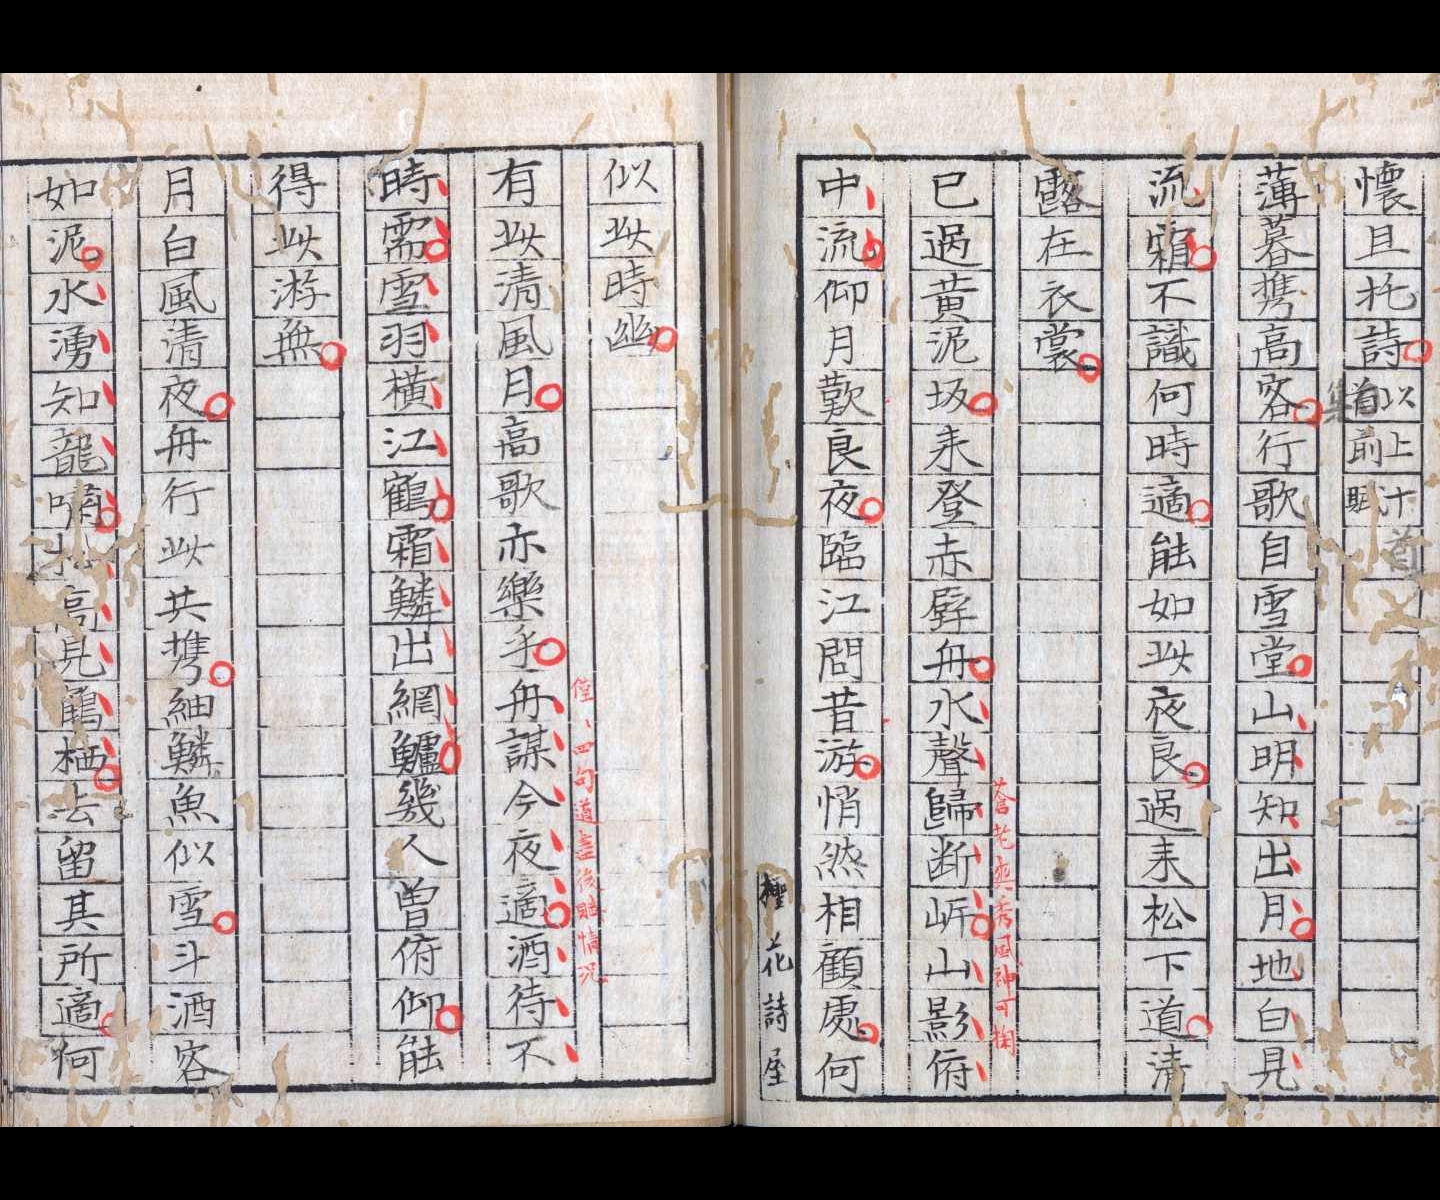 懷且托詩以上十首前賦
薄暮携高客行歌自雪堂山明知出月地白見
流霜不識何時適能如此夜良過来松下道清
露在衣裳
已過黃泥坂来登赤壁舟水聲歸断岍山影俯
中流仰月歎良夜臨江問昔游悄然相顧處何
種花詩屋
蒼老爽秀風神可掬
似此時幽
有此清風月高歌亦樂乎舟謀今夜適酒待不
時需雪羽橫江鶴霜鱗出網鱸幾人曾俯仰能
得此游無
月白風清夜舟行此共携細鱗魚似雪斗酒客
如泥水湧知龍嘯高見鶴栖去留其所適何
四句道盡後賦情况